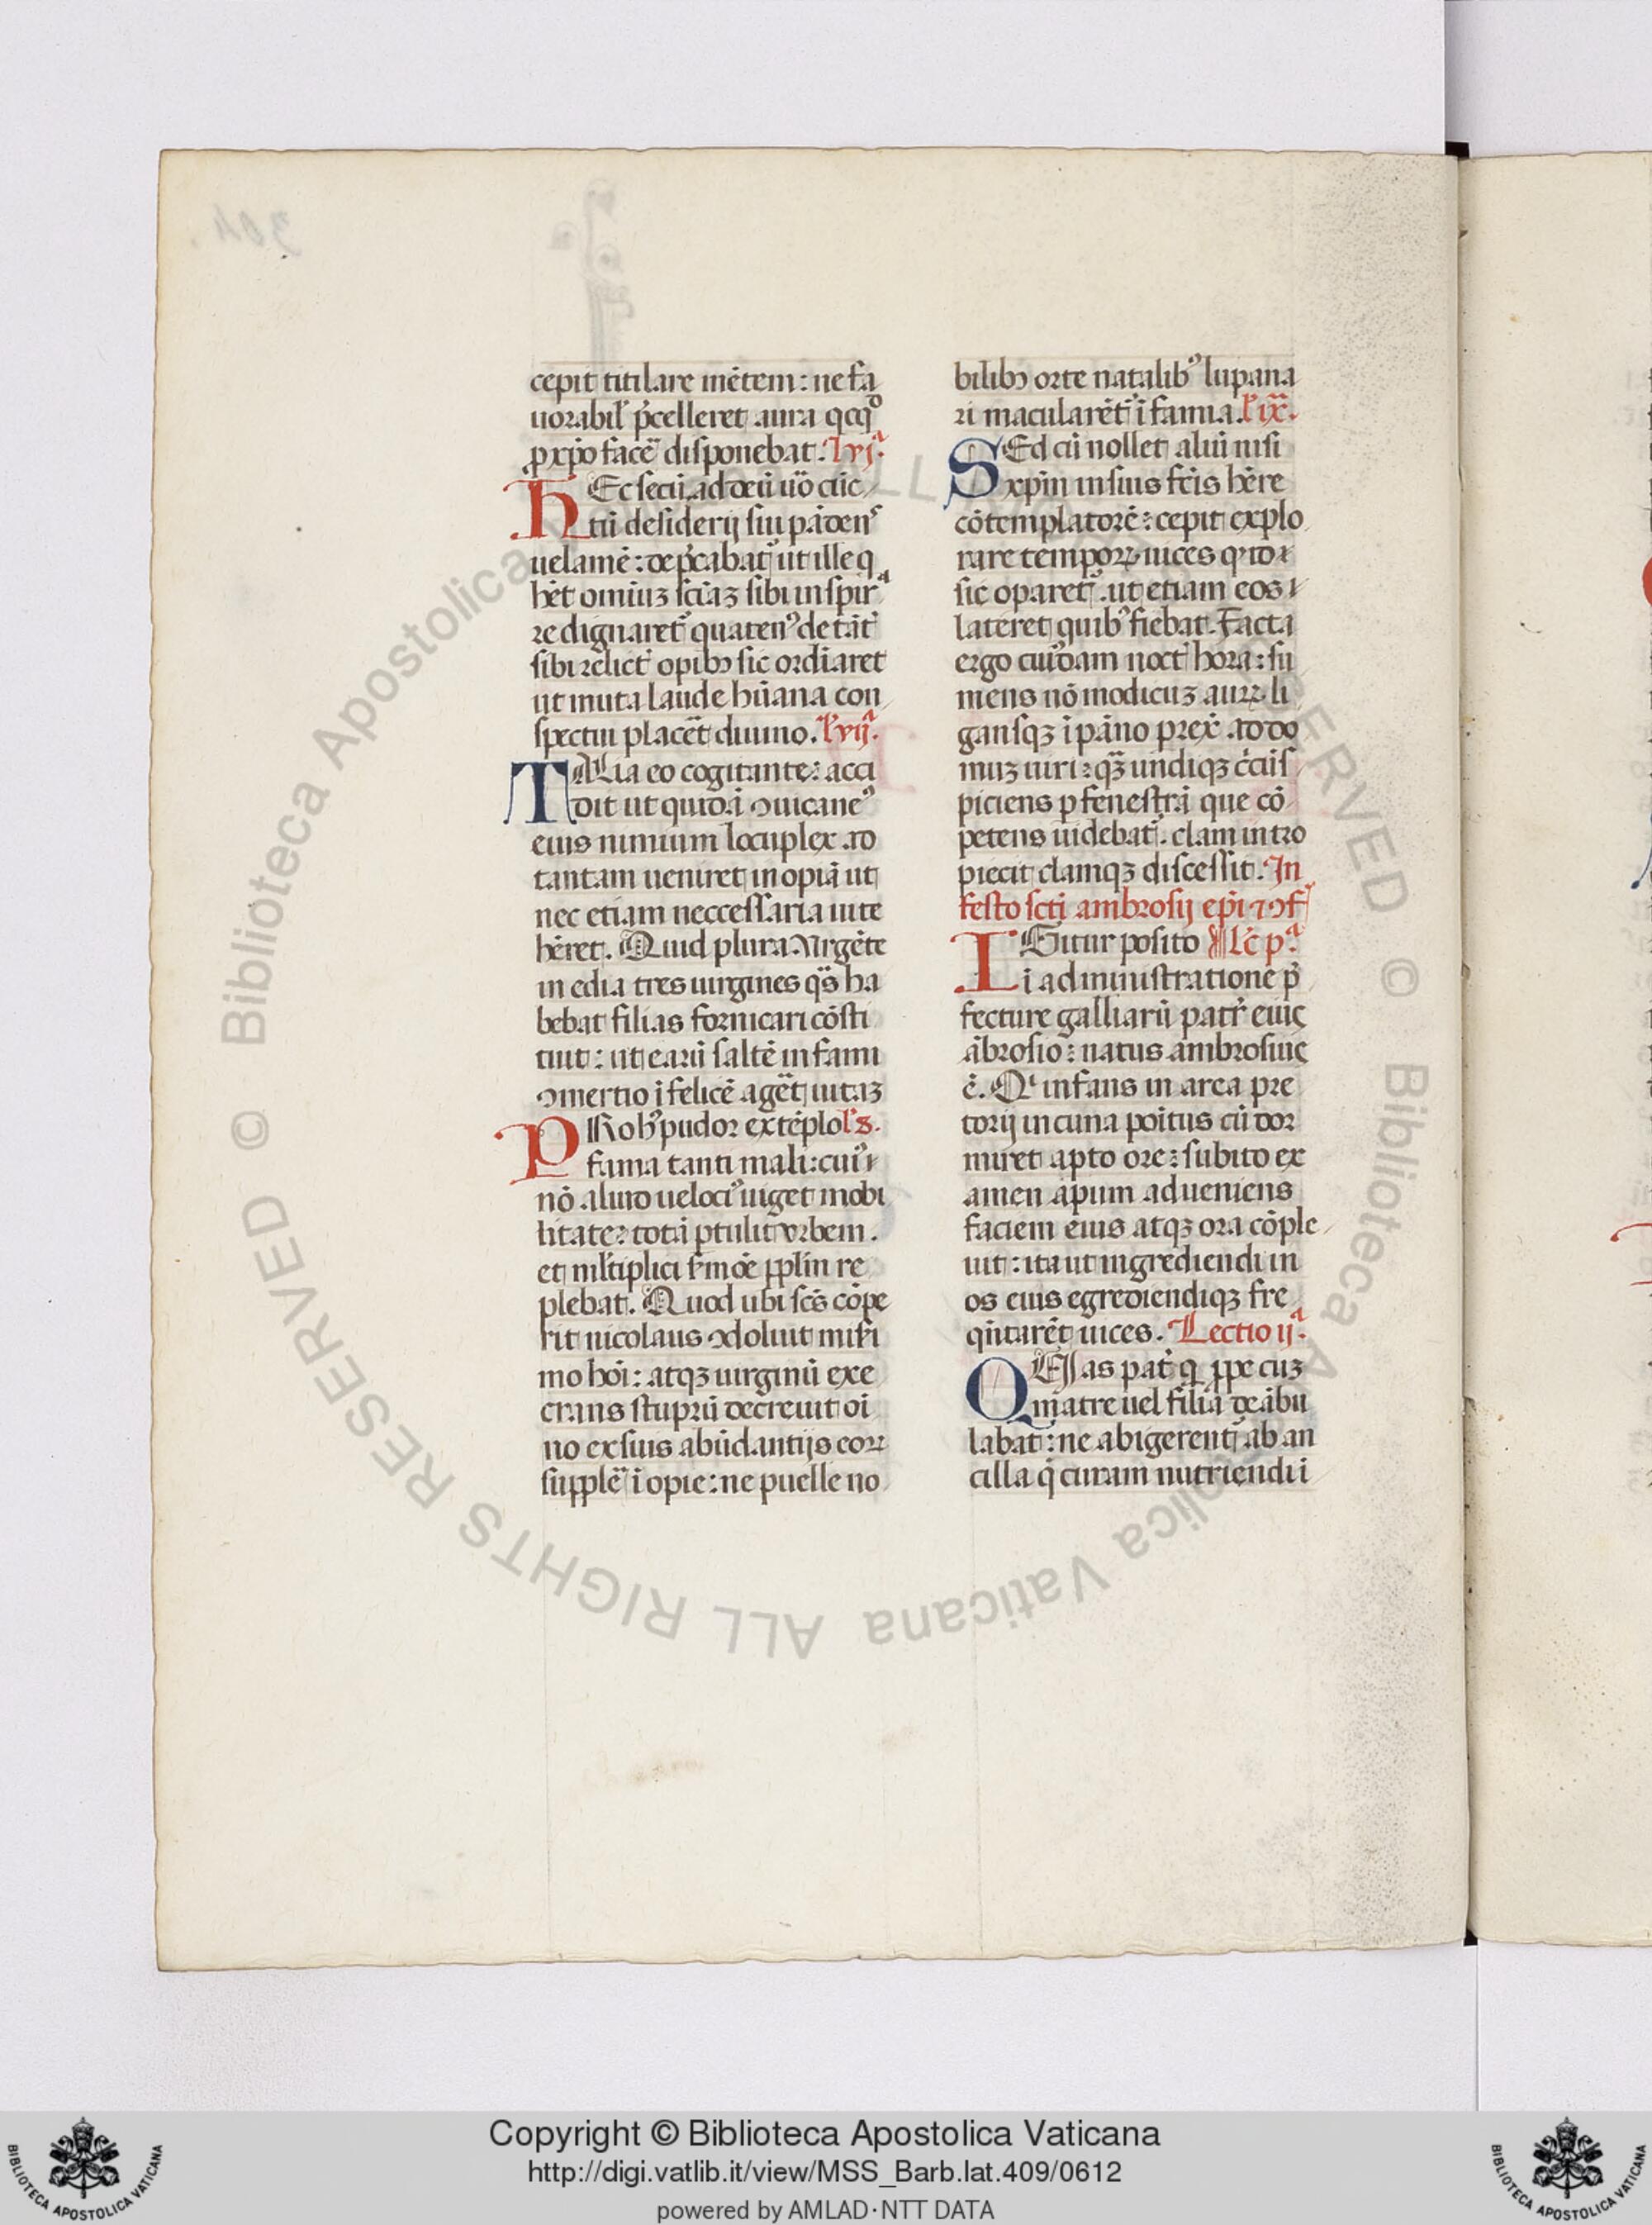 cepit titilare mẽtem: ne fa
uorabil' p̃celleret aura q̃cq̃°
ꝓ xp̃o facẽ disponebat. l'vjª.
HEc secũ. ad deũ uõ cũc
tũ desiderij sui pãdens
uelamẽ: dep̃cabat᷑ ut ille q
hẽt omniuʒ sciãʒ sibi inspirª
re dignaret᷑ quatenꝰ de tãt
sibi relict' opibꝫ sic ordĩaret
ut muta laude hũana con
spectui placẽt diuino. l'vijª.
TAlia eo cogitante: acci
dit ut quidã ↄuicaneꝰ
eius nimium locuplex. to
tantam ueniret inopiã ut
nec etiam neccessaria uite
hẽret. Quid plura? Vrgẽte
inedia tres uirgines q̃s ha
bebat filias fornicari cõsti
tuit: ut earũ saltẽ infami
ↄmertio ĩfelicẽ agẽt uitaʒ
PRohꝰ pudor extẽplo l'8.
fama tanti mali: cuiꝰ
nõ aliud uelociꝰ uiget mobi
litate? totã ꝑtulit urbem.
et ml'tiplici s'mõe ppl'm re
plebat. Quod ubi scs̃ cõpe
rit nicolaus ↄdoluit mis'i
mo hoĩ: atqꝫ uirginũ exe
crans stuprũ decreuit oĩ
no ex suis abũdantijs eoꝝ
supplẽ ĩopie: ne puelle no
bilibꝫ orte natalibꝰ lupana
ri macularẽt᷑ ĩfamia. l'ixª.
SEd cũ nollet aliũ nisi
xp̃m in suis fc̃is hẽre
cõtemplatorẽ: cepit explo
rare tempoꝝ uices q̃ do
sic oparet᷑. ut etiam eos
lateret quibꝰ fiebat. Facta
ergo cuiꝰdam noct' hora: su
mens nõ modicuʒ auꝝ li
gansqꝫ ĩ pãno prexĩt. to do
muʒ uiri: q̃ʒ undiqꝫ c̃cũs
piciens ꝑ fenestrã que cõ
petens uidebat᷑. clam intro
piecit clamqꝫ discessit. In
festo scti ambrosij epĩ ⁊ ↄf
IGitur posito l'c̃ pª.
i administratione p̃
fecture galliarũ patr' euiꝰ
ãbrosio: natus ambrosius
ẽ. Qi infans in area pre
torij in cuna poĩtus cũ dor
miret apto ore: subito ex
amen apum adueniens
faciem eius atqꝫ ora cõple
uit: ita ut ingrediendi in
os eius egrediendiqꝫ fre
q̃ntarẽt uices. Lectio ijª.
QEJas pat' q̃ ꝓpe cuʒ
matre uel filia deãbu
labat: ne abigerent᷑ ab an
cilla q̃ curam nutriendi ĩ
Copyright © Biblioteca Apostolica Vaticana
http://digi.vatlib.it/view/MSS_Barb.lat.409/0612
powered by AMLAD·NTT DATA
© Biblioteca Apostolica Vaticana ALL RIGHTS RESERVED
BIBLIOTECA APOSTOLICA VATICANA
BIBLIOTECA APOSTOLICA VATICANA